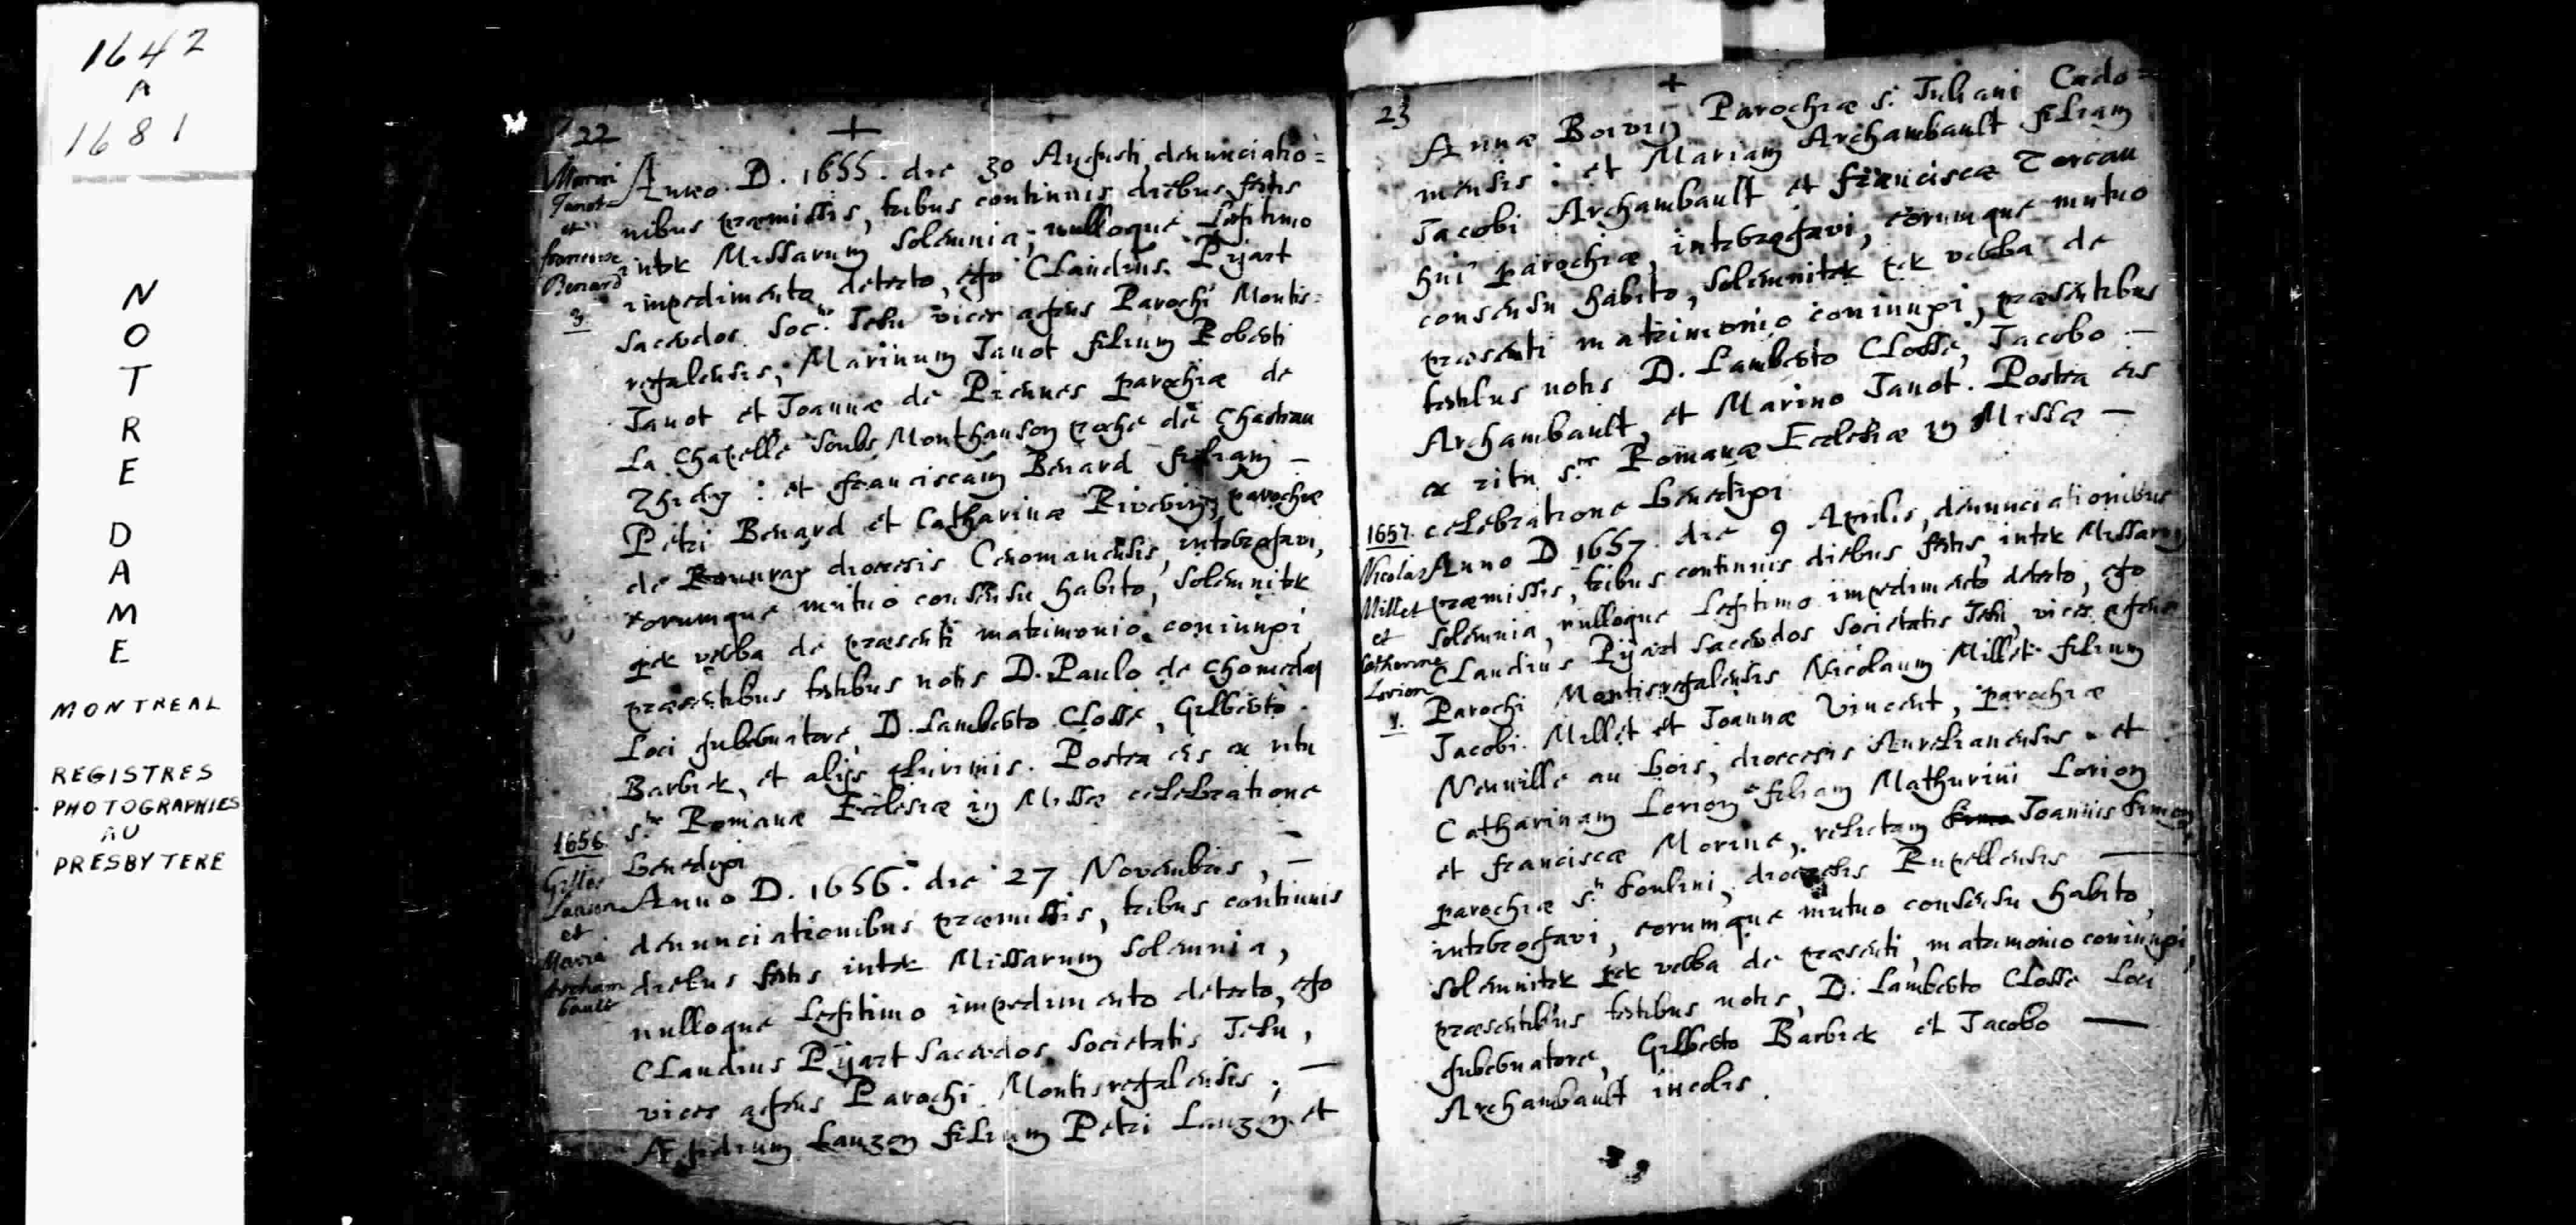 1642
A
1681
NOTRE
DAME
MONTREAL
REGISTRES
PHOTOGRAPHIES
AU
PRESBYTERE
22
+
Marin
Janot
et
francoise
Benard
3.
Anno. D. 1655. die 30 Augusti, denunciatio=
nibus præmissis, tribus continuis diebus festis
inter Missarum Solemnia, nulloque Legitimo
impedimento detecto, ego Claudius Pijart
Sacerdos Soc. Jesu vices agens Parochi Montis=
regalensis, Marinum Janot filium Roberti
Janot et Joannæ de Piennes parochiæ de
La Chapelle Soubs Monthauson proche de Chasteau
Thierry : et franciscam Benard filiam –
Petri Benard et Catharinæ parochiæ
de diocesis Cenomanensis, interrogavi,
eorumque mutuo consensu habito, Solemniter
per verba de præsenti matrimonio coniunxi
præsentibus testibus notis D. Paulo de Chomedey
Loci gubernatore, D. Lamberto Closse, Gilberto
Barbier, et alijs plurimis. Postea eis ex ritu
s.tæ Romanæ Ecclesiæ in Missæ celebratione
benedixi
1656.
Gilles
Lauson
et
Marie
Archam
bault
Anno D. 1656. die 27 Novembris, –
denunciationibus præmissis, tribus continuis
diebus festis inter Missarum Solemnia,
nulloque Legitimo impedimento detecto, ego
Claudius Pijart Sacerdos Societatis Jesu,
vices agens Parochi Montisregalensis, –
Ægidium Lauzon filium Petri Lauzon et
23
+
Annæ Boivin Parochiæ s. Juliani Cado=
mensis : et Mariam Archambault filiam
Jacobi Archambault et franciscæ Toreau
huius parochiæ, interrogavi, eorumque mutuo
consensu habito, Solemniter per verba de
præsenti matrimonio coniunxi, præsentibus
testibus notis D. Lamberto Closse, Jacobo –
Archambault, et Marino Janot. Postea eis
ex ritu s.tæ Romanæ Ecclesiæ in Missæ –
celebratione benedixi
1657.
Nicolas
Millet
et
Catherine
Lorion
1.
Anno D 1657. die 9 Aprilis, denunciationibus
præmissis, tribus continuis diebus festis, inter Missarum
Solemnia, nulloque Legitimo impedimento detecto, ego
Claudius Pijart Sacerdos Societatis Jesu, vices agens
Parochi Montisregalensis Nicolaum Millet filium
Jacobi Millet et Joannæ Vincent, parochiæ
Neuville au bois, diocesis Aurelianensis et
Catharinam Lorion filiam Mathurini Lorion
et franciscæ Morine, relictam Joannis Simon
parochiæ s.ti Soulini, diocesis Rupellensis —
interrogavi, eorumque mutuo consensu habito,
Solemniter per verba de præsenti, matrimonio coniunxi,
præsentibus testibus notis, D. Lamberto Closse Loci
gubernatore, Gilberto Barbier et Jacobo —
Archambault incolis.